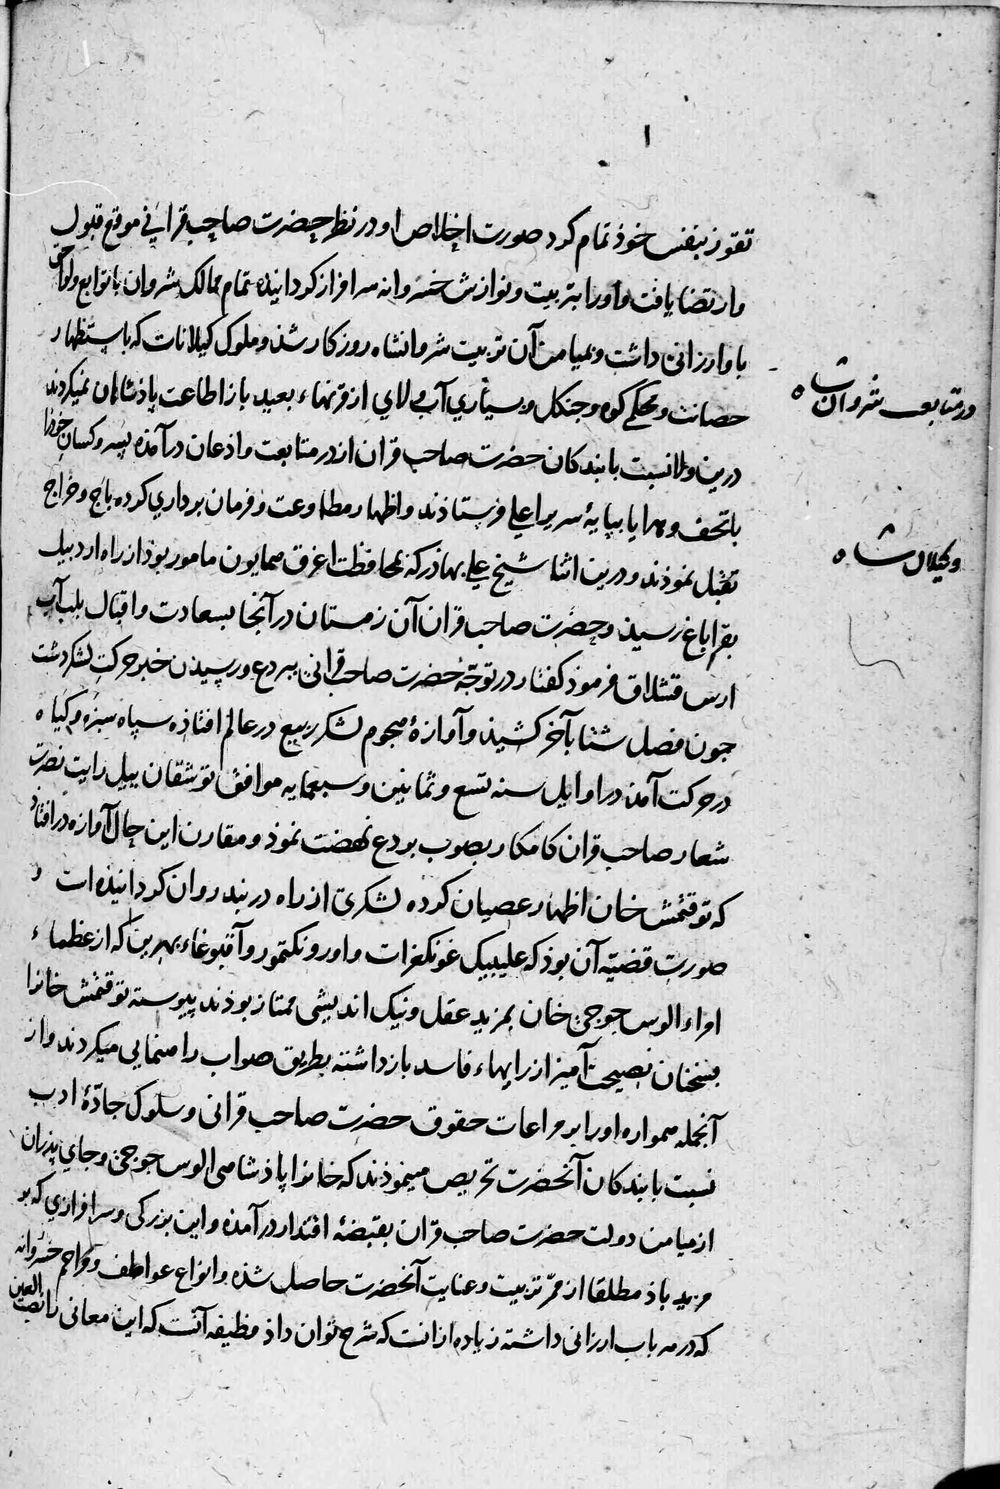 ۱
تقوز بنفس خوذ تمام کرد صورت اخلاص او در نظر حضرت صاحب قرانی موقع قبول
وارتضا یافت و او را بتربیت و نوازش خسروانه سرافراز کردانیده تمام ممالک شروان با توابع ولواحق
باو ارزانی داشت و بمیامن آن تربیت شروانشاه روزکار شد و ملوک کیلانات که باستظهار
حصانت و محکمی کوه و جنکل و بسیاری آب و لای از قرنهاء بعید باز اطاعت پاذشاهان نمیکردند
درین ولا نسبت با بندکان حضرت صاحب قران از در متابعت و اذعان درآمذه پسر و کسان خوذرا
با تحف و هدایا بپایهٔ سریر اعلی فرستاذند و اظهار مطاوعت و فرمان برداری کرده باج و خراج
تقبل نموذند و درین اثنا شیخ علی بهاذر که بمحافظت اغرق همایون مامور بوذ از راه اردبیل
بقراباغ رسیذ و حضرت صاحب قران آن زمستان در آنجا بسعادت و اقبال بلب آب
ارس قشلاق فرموذ کفتار در توجّه حضرت صاحب قرانی ببردع و رسیدن خبر حرکت لشکر دشت
جون فصل شتا بآخر کشیذ و آوازهٔ هجوم لشکر ربیع در عالم افتاذه سپاه سبزه و کیاه
در حرکت آمد در اوایل سنه تسع و ثمانین و سبعمایه موافق توشقان ییل رایت نصرت
شعار صاحب قران کامکار بصوب بردع نهضت نموذ و مقارن این حال آوازه در افتاذ
که توقتمش خان اظهار عصیان کرده لشکری از راه دربند روان کردانیذه است و
صورت قضیّه آن بوذ که علیبیک غونکغرات و اورونکتمور و آقبوغاء بهرین که از عظماء
امراء الوس جوجی خان بمزید عقل و نیک اندیشی ممتاز بوذند پیوسته توقتمش خانرا
بسخنان نصیحت آمیز از رایهاء فاسد بازداشته بطریق صواب راهنمایی میکردند و از
آنجمله همواره او را بر مراعات حقوق حضرت صاحب قرانی و سلوک جادّهٔ ادب
نسبت با بندکان آنحضرت تحریص مینموذند که خانرا پاذشاهی الوس جوجی و جای پذران
از میامن دولت حضرت صاحب قران بقبضهٔ اقتدار درآمذه و این بزرکی و سرافرازی که بر
مزید باذ مطلقا از ممرّ تربیت و عنایت آنحضرت حاصل شذه و انواع عواطف و مراحم خسروانه
که در هر باب ارزانی داشته زیاده از انست که شرح توان داذ وظیفه آنست که این معانی را نصب العین
در متابعت شروان شاه
و کیلان شاه